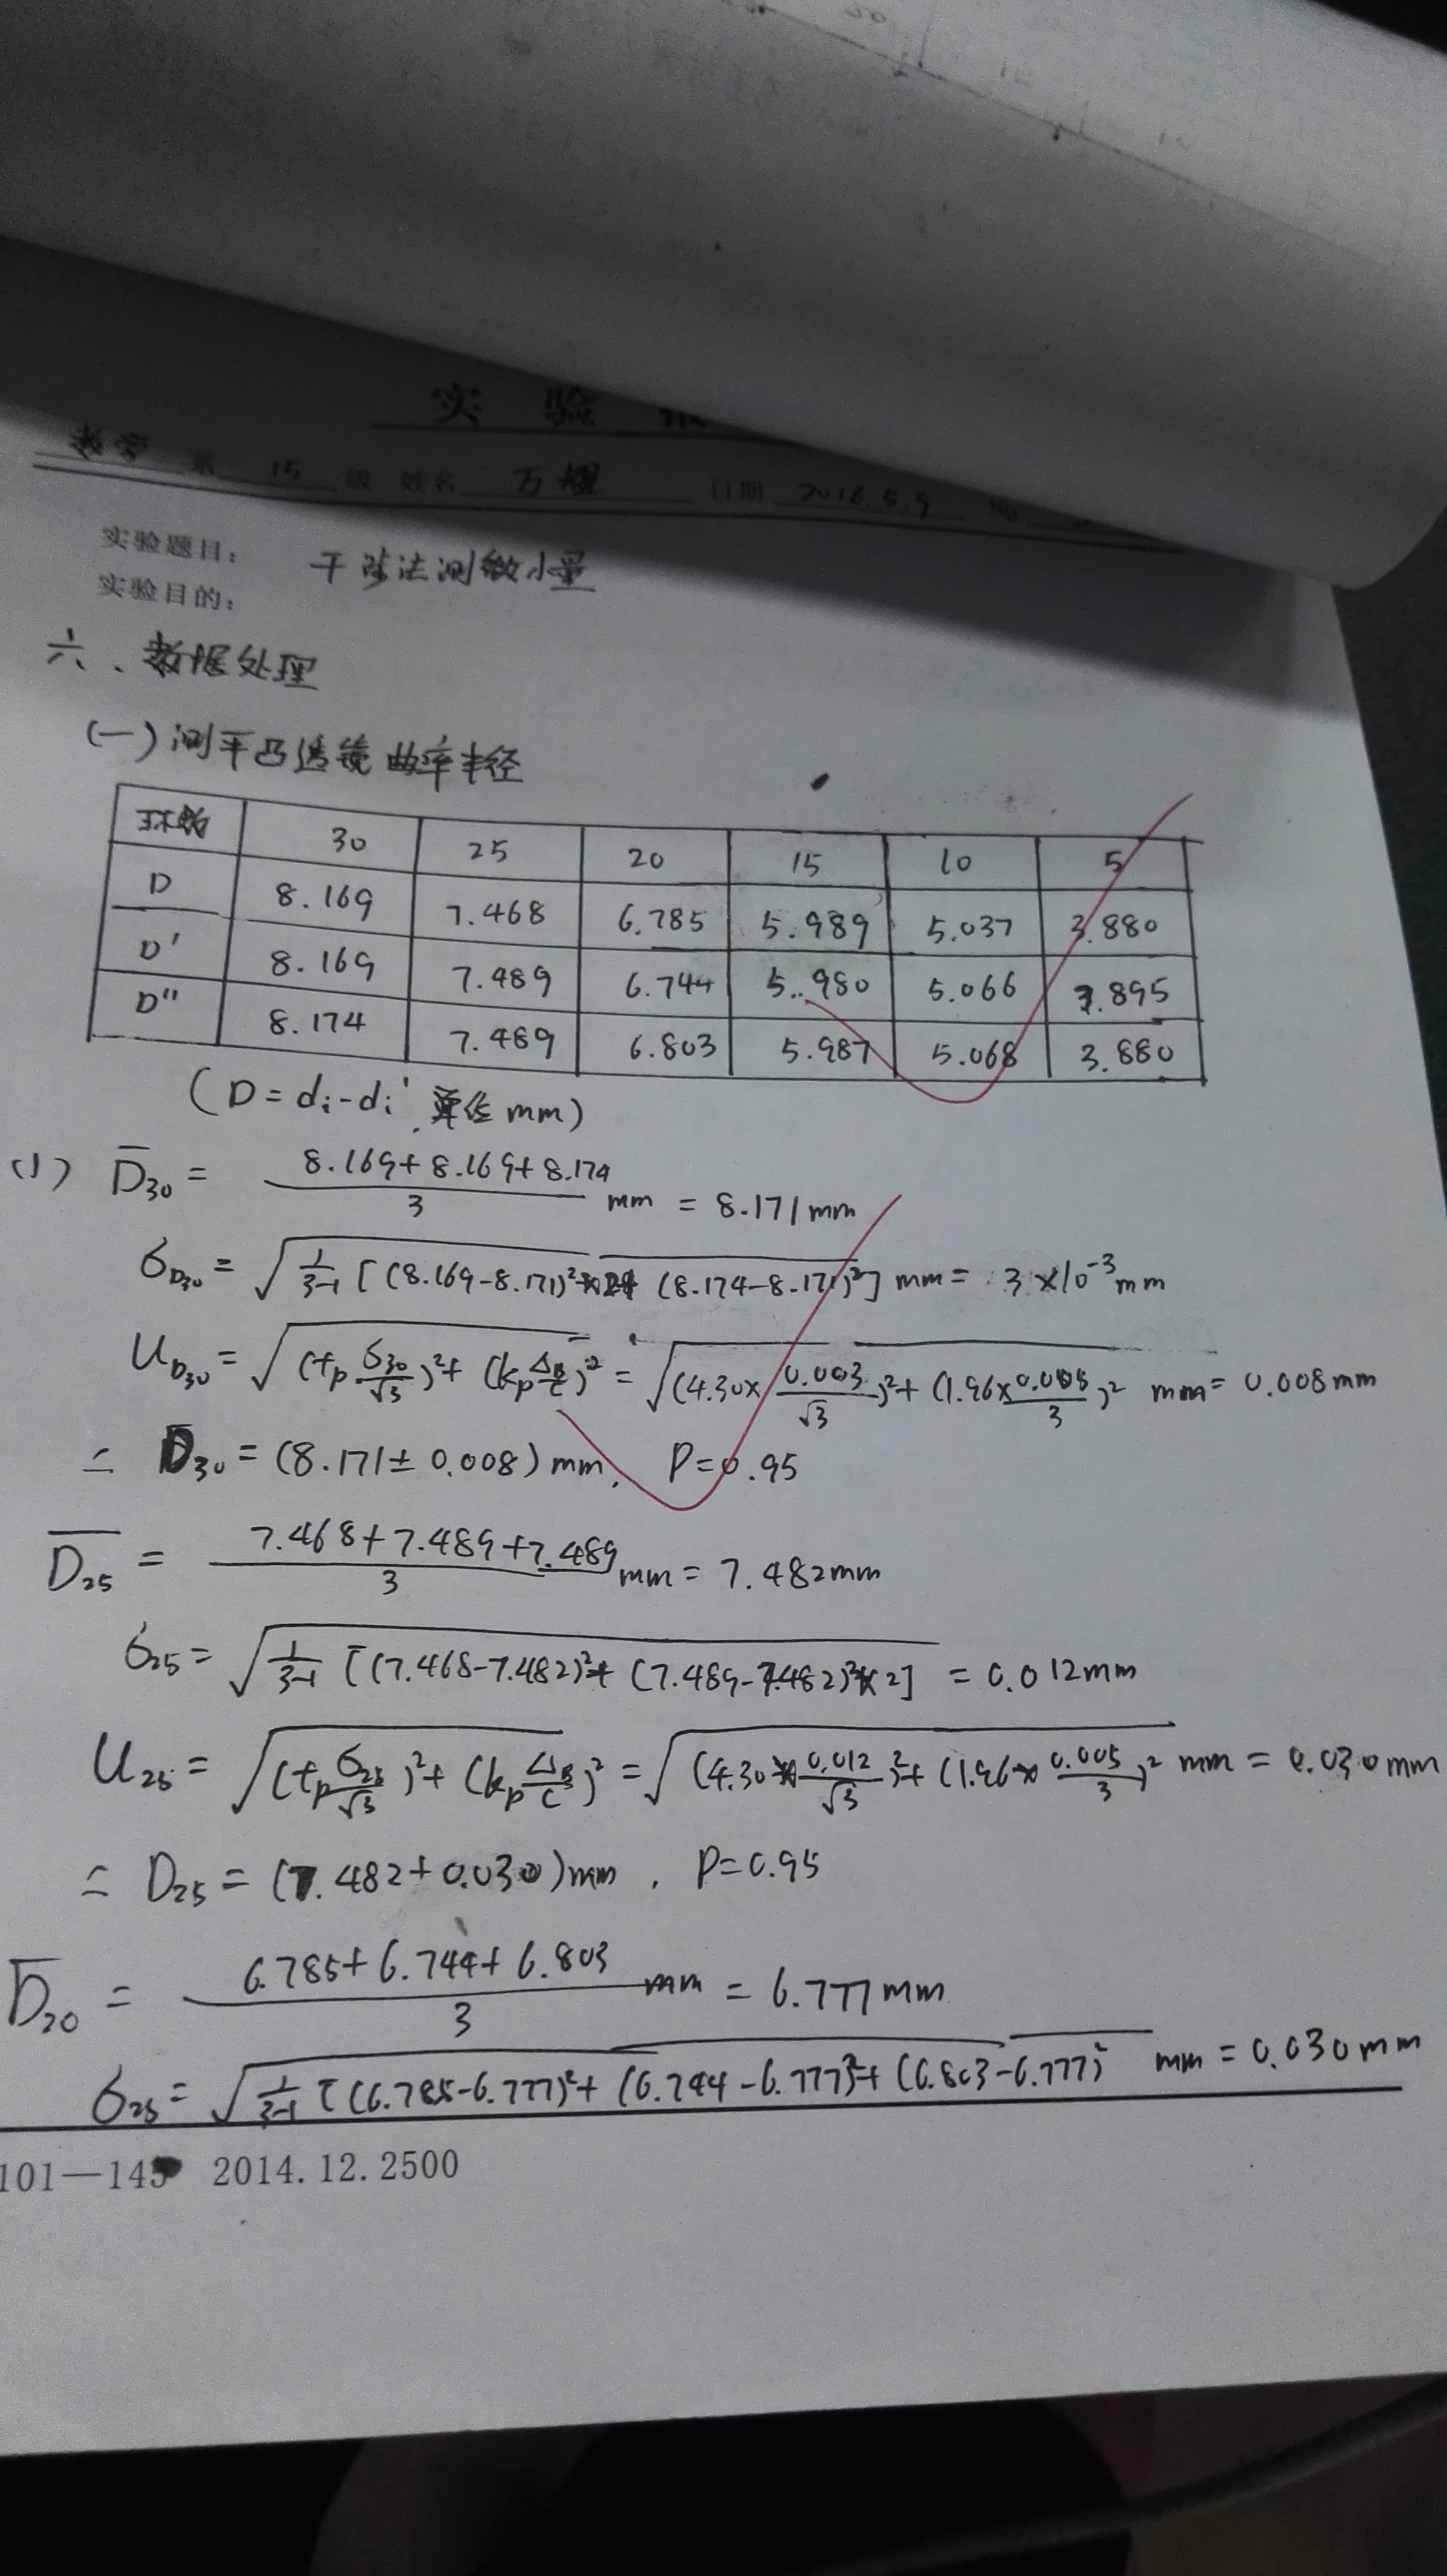 实 验
数学 系 15 级 姓名 万 日期 2016.5.9 No
实验题目: 干涉法测微小量
实验目的:
六、数据处理
(一)测平凸透镜曲率半径
环数 30 25 20 15 10 5
D 8.169 7.468 6.785 5.989 5.037 3.880
D' 8.169 7.489 6.744 5.980 5.066 3.895
D" 8.174 7.489 6.803 5.987 5.068 3.880
(D=di-di' 单位 mm)
(1) D̄30 = (8.169+8.169+8.174)/3 mm = 8.171mm
σD30 = √(1/(3-1) [(8.169-8.171)²×2+ (8.174-8.171)²]) mm = 3×10⁻³mm
UD30 = √((tp σ30/√3)²+(kp ΔB/C)²) = √((4.30×0.003/√3)²+(1.96×0.005/3)²) mm = 0.008mm
∴ D30 = (8.171±0.008)mm, P=0.95
D̄25 = (7.468+7.489+7.489)/3 mm = 7.482mm
σ25 = √(1/(3-1) [(7.468-7.482)²+(7.489-7.482)²×2]) = 0.012mm
U25 = √((tp σ25/√3)²+(kp ΔB/C)²) = √((4.30×0.012/√3)²+(1.96×0.005/3)²) mm = 0.030mm
∴ D25 = (7.482±0.030)mm, P=0.95
D̄20 = (6.785+6.744+6.803)/3 mm = 6.777mm
σ25 = √(1/(3-1) [(6.785-6.777)²+(6.744-6.777)²+(6.803-6.777)²) mm = 0.030mm
101—145 2014.12.2500